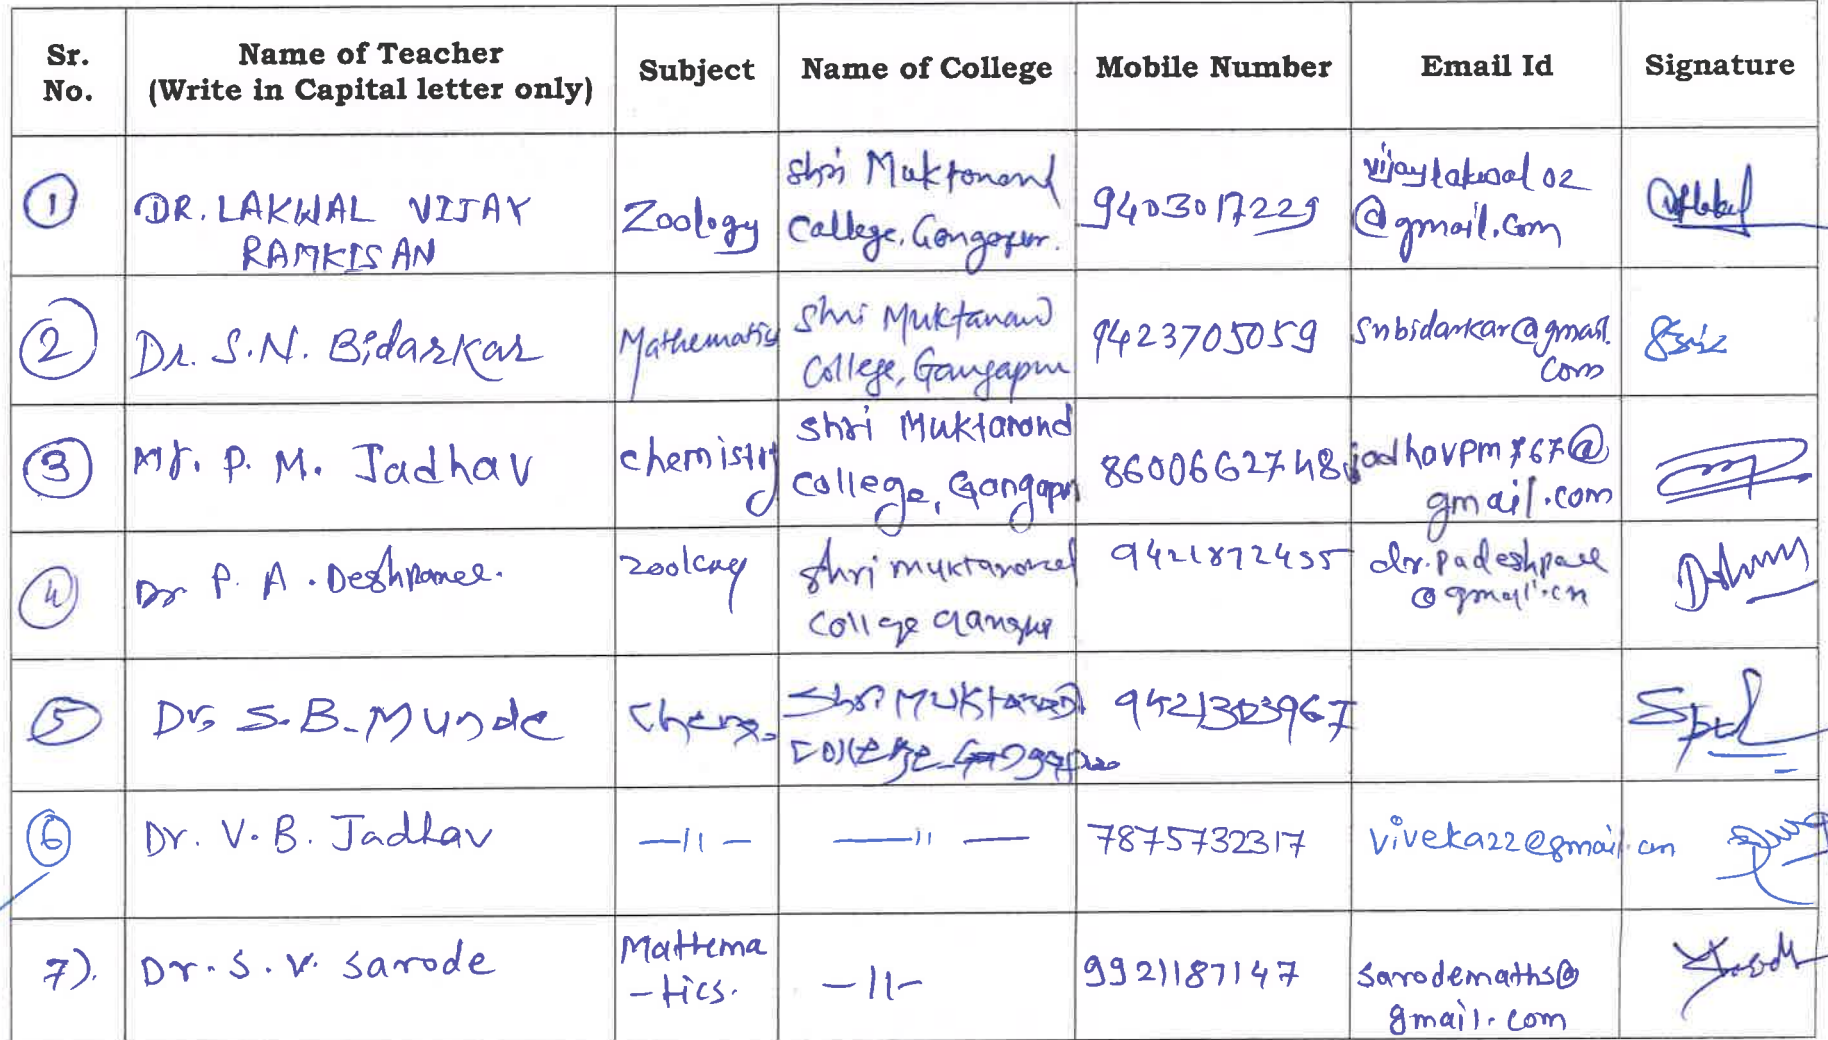 Sr. No. Name of Teacher (Write in Capital letter only) Subject Name of College Mobile Number Email Id Signature
1 DR. LAKWAL VIJAY RAMKISAN Zoology Shri Muktanand College, Gangapur. 9403017229 vijaylakwal02@gmail.com
2 Dr. S.N. Bidarkar Mathematics Shri Muktanand College, Gangapur 9423705059 snbidarkar@gmail.com
3 Mr. P. M. Jadhav chemistry Shri Muktanand College, Gangapur 8600662748 jadhavpm767@gmail.com
4 Dr P. A. Deshpande. zoology Shri muktanand College Gangapur 9421872455
5 Dr. S. B. Munde Chem. Shri Muktanand College Gangapur
6 Dr. V. B. Jadhav —11— —11— 7875732317
7). Dr. S. V. Sarode Mathema-tics. —11— 9921187147 sarodemaths@gmail.com